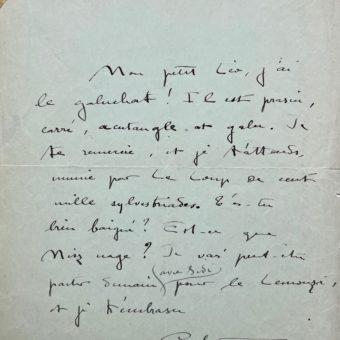 Mon petit Léo, j'ai
le galuchat ! Il est prasin,
carré, acutangle et galu. Je
te remercie, et je t'attends,
munie par Le Loup de cent
mille sylvestriades. T'es-tu
bien baigné ? Est-ce que
nage ? Je vais peut-être
partir demain (avec Sidi) pour le Limousin,
et je t'embrasse